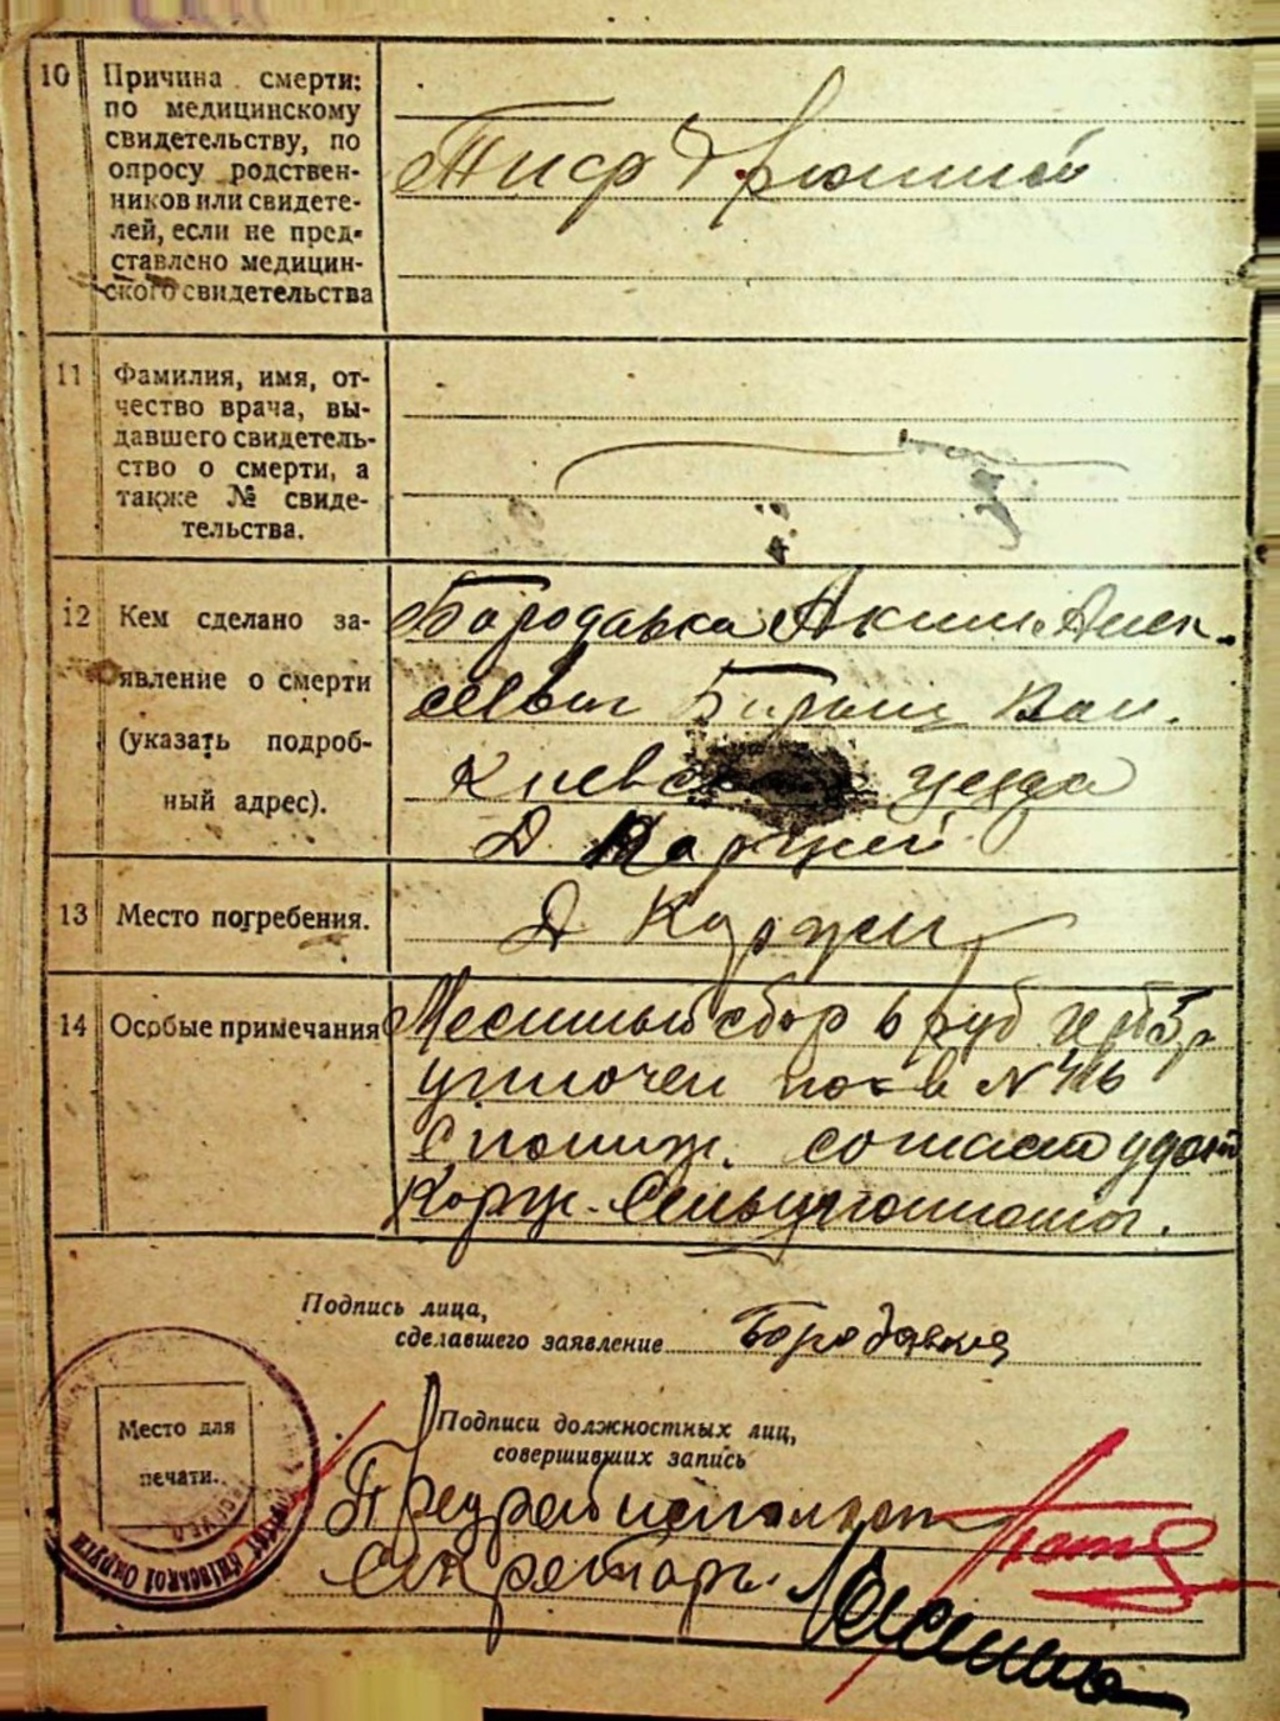 10 Причина смерти:
по медицинскому
свидетельству, по
опросу родствен-
ников или свидете-
лей, если не пред-
ставлено медицин-
ского свидетельства
Тиф брюшной
11 Фамилия, имя, от-
чество врача, вы-
давшего свидетель-
ство о смерти, а
также № свиде-
тельства.
12 Кем сделано за-
явление о смерти
(указать подроб-
ный адрес).
Бородавка Аким Алек
сеевич Вол.
Киевс уезда
Д.
13 Место погребения.
Д Коржи
14 Особые примечания
Местный сбор 6 руб
уплочен N
согласно удост
Корж.
Подпись лица,
сделавшего заявление Бородавка
Подписи должностных лиц,
совершивших запись
Место для
печати.
Предрайисполком
Секретарь
Київської Округи